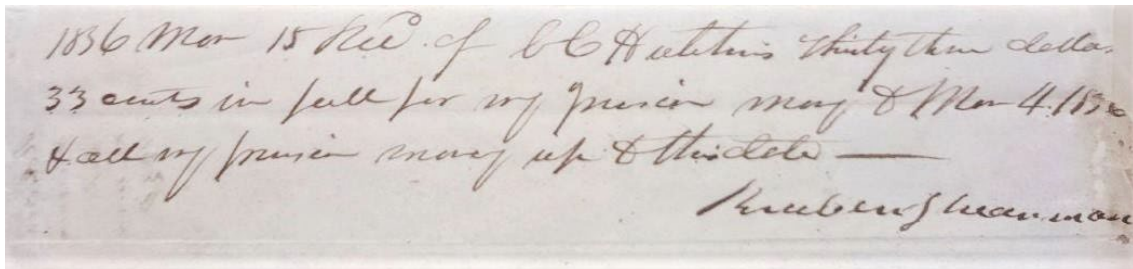 1836 Mar 15 Recd. of C C Hutchins Thirty three dolla
33 cents in full for my pension money to Mar 4. 1836
& all my pension money up to this date —
Reuben Shearman